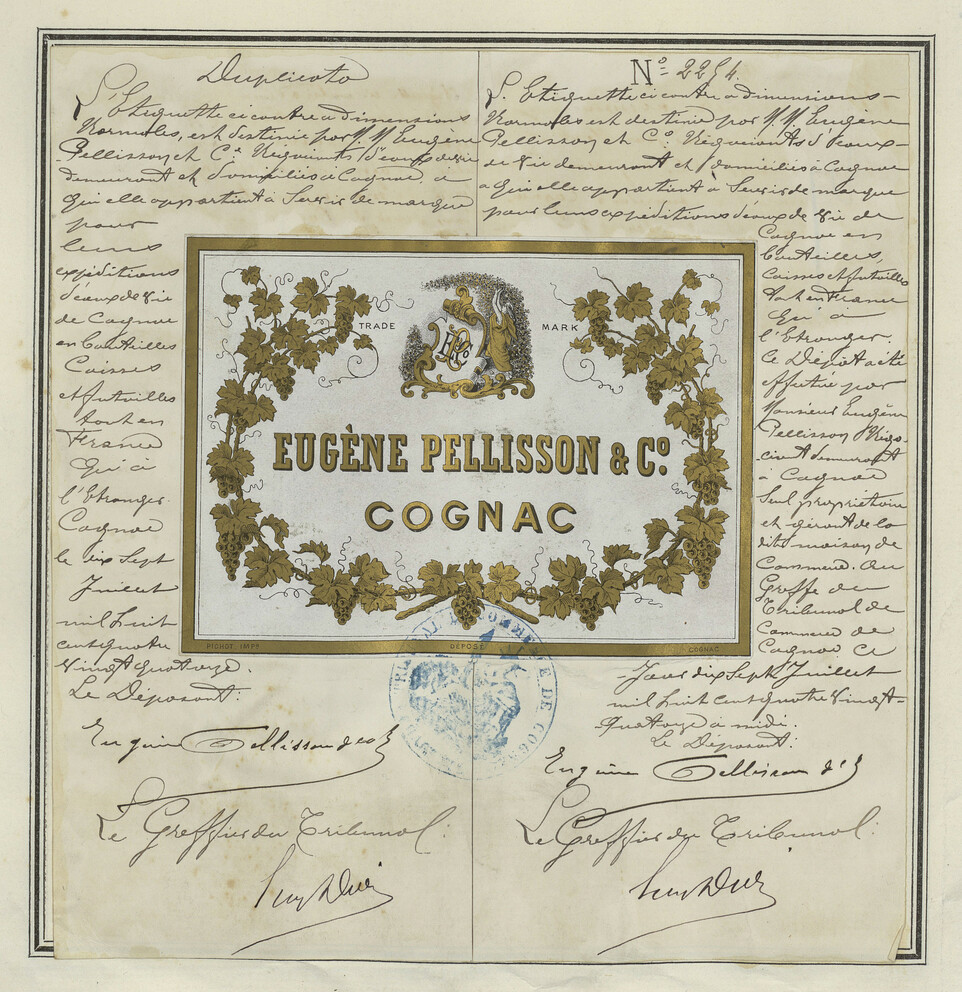 Duplicata
L'Etiquette ci contre a dimensions
Normales, est destinée par M.M. Eugène
Pellisson et Cie Négociants d'eaux de vie
demeurant et domiciliés à Cognac, a
qui elle appartient à Servir de marque
pour
leurs
expéditions
d'eaux de Vie
de Cognac
en Bouteilles
Caisses
et futailles
tant en
France
qu'à
l'Etranger.
Cognac
le dix Sept
Juillet
mil huit
cent quatre
Vingt quatorze.
Le Déposant:
Eugène Pellisson & Co
Le Greffier du Tribunal.
No 2254.
L'Etiquette ci contre a dimensions
Normales est destinée par M.M. Eugène
Pellisson et Co. Négociants d'Eaux-
de Vie demeurant et domiciliés à Cognac
a qui elle appartient à Servir de marque
pour leurs expéditions d'eaux de Vie de
Cognac en
Bouteilles,
Caisses et futailles
tant en France
qu'à
l'Etranger.
Ce Dépôt a été
effectué par
Monsieur Eugène
Pellisson Négo-
ciant demeurant
à Cognac
Seul propriétaire
et gérant de la
dite maison de
Commerce. Au
Greffe du
Tribunal de
Commerce de
Cognac Ce
Jour dix Sept Juillet
mil huit cent quatre Vingt-
quatorze à midi.
Le Déposant:
Eugène Pellisson & Co
Le Greffier du Tribunal:
TRADE MARK
EUGÈNE PELLISSON & Co.
COGNAC
PICHOT, IMPR. DÉPOSÉ COGNAC
TRIBUNAL DE COMMERCE DE COGNAC